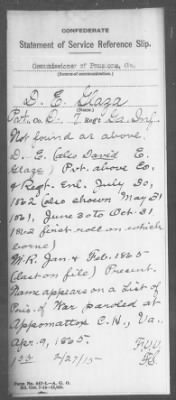 CONFEDERATE.
Statement of Service Reference Slip.
Commissioner of Pensions, Ga.
(Source of communication.)
D. E. Glaza
(Name.)
Pvt. Co. D. 7 Regt. La. Inf.
Not found as above.
D. E. (also David E.
Glaze) Pvt. above Co.
& Regt. Enl. July 30,
1862 (also shown May 31
1861, June 30 to Oct. 31
1862 first roll on which
borne)
M.R. Jan & Feb. 1865
(last on file) Present.
Name appears on a List of
Pris. of War paroled at
Appomattox C.H., Va.
Apr. 9, 1865.
2/27/15